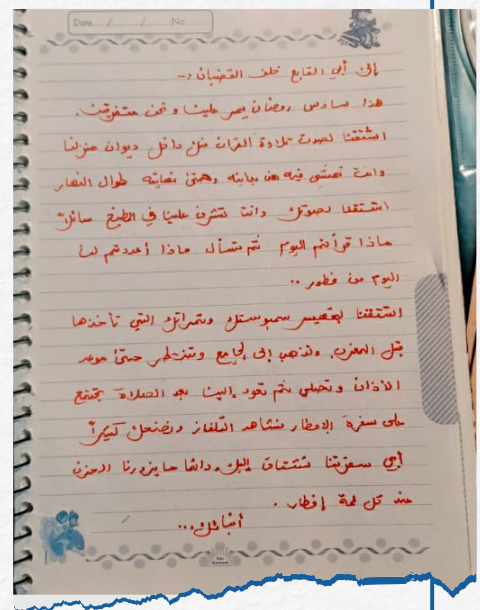 Date / / No
إلى أبي القابع خلف القضبان :-
هذا سادس رمضان يمر علينا ونحن متفرقين.
اشتقنا لصوت تلاوة القرآن منك داخل ديوان منزلنا
وانت تمشي فيه من بدايته وحتى نهايته طوال النهار
اشتقنا لصوتك وانتا تشرف علينا في الطبخ سائلاً
ماذا قرأتم اليوم ثم تسأل ماذا أعددتم لنا
اليوم من فطور ..
اشتقنا لتحضير سمبوستك وتمراتك التي تأخذها
قبل المغرب، وتذهب إلى الجامع وتنتظر حتى موعد
الأذان وتصلي ثم تعود إلينا بعد الصلاة نجتمع
على سفرة الإفطار نشاهد التلفاز ونضحك كثيراً
أبي سفرتنا تشتاق إليك ودائما ما يزورنا الحزن
عند كل لمة إفطار.
أبنائك...